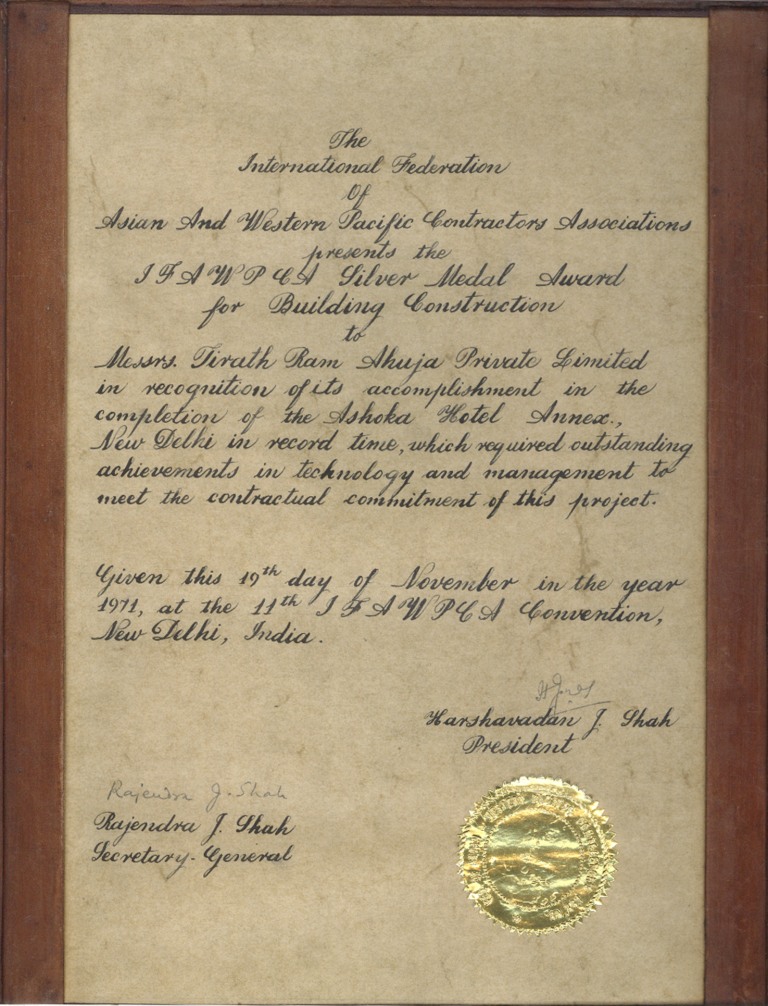 The
International Federation
Of
Asian And Western Pacific Contractors Associations
presents the
I F A W P C A Silver Medal Award
for Building Construction
to
Messrs. Tirath Ram Ahuja Private Limited
in recognition of its accomplishment in the
completion of the Ashoka Hotel Annex.,
New Delhi in record time, which required outstanding
achievements in technology and management to
meet the contractual commitment of this project.
Given this 19th day of November in the year
1971, at the 11th I F A W P C A Convention,
New Delhi, India.
Harshavadan J. Shah
President
Rajendra J. Shah
Rajendra J. Shah
Secretary-General